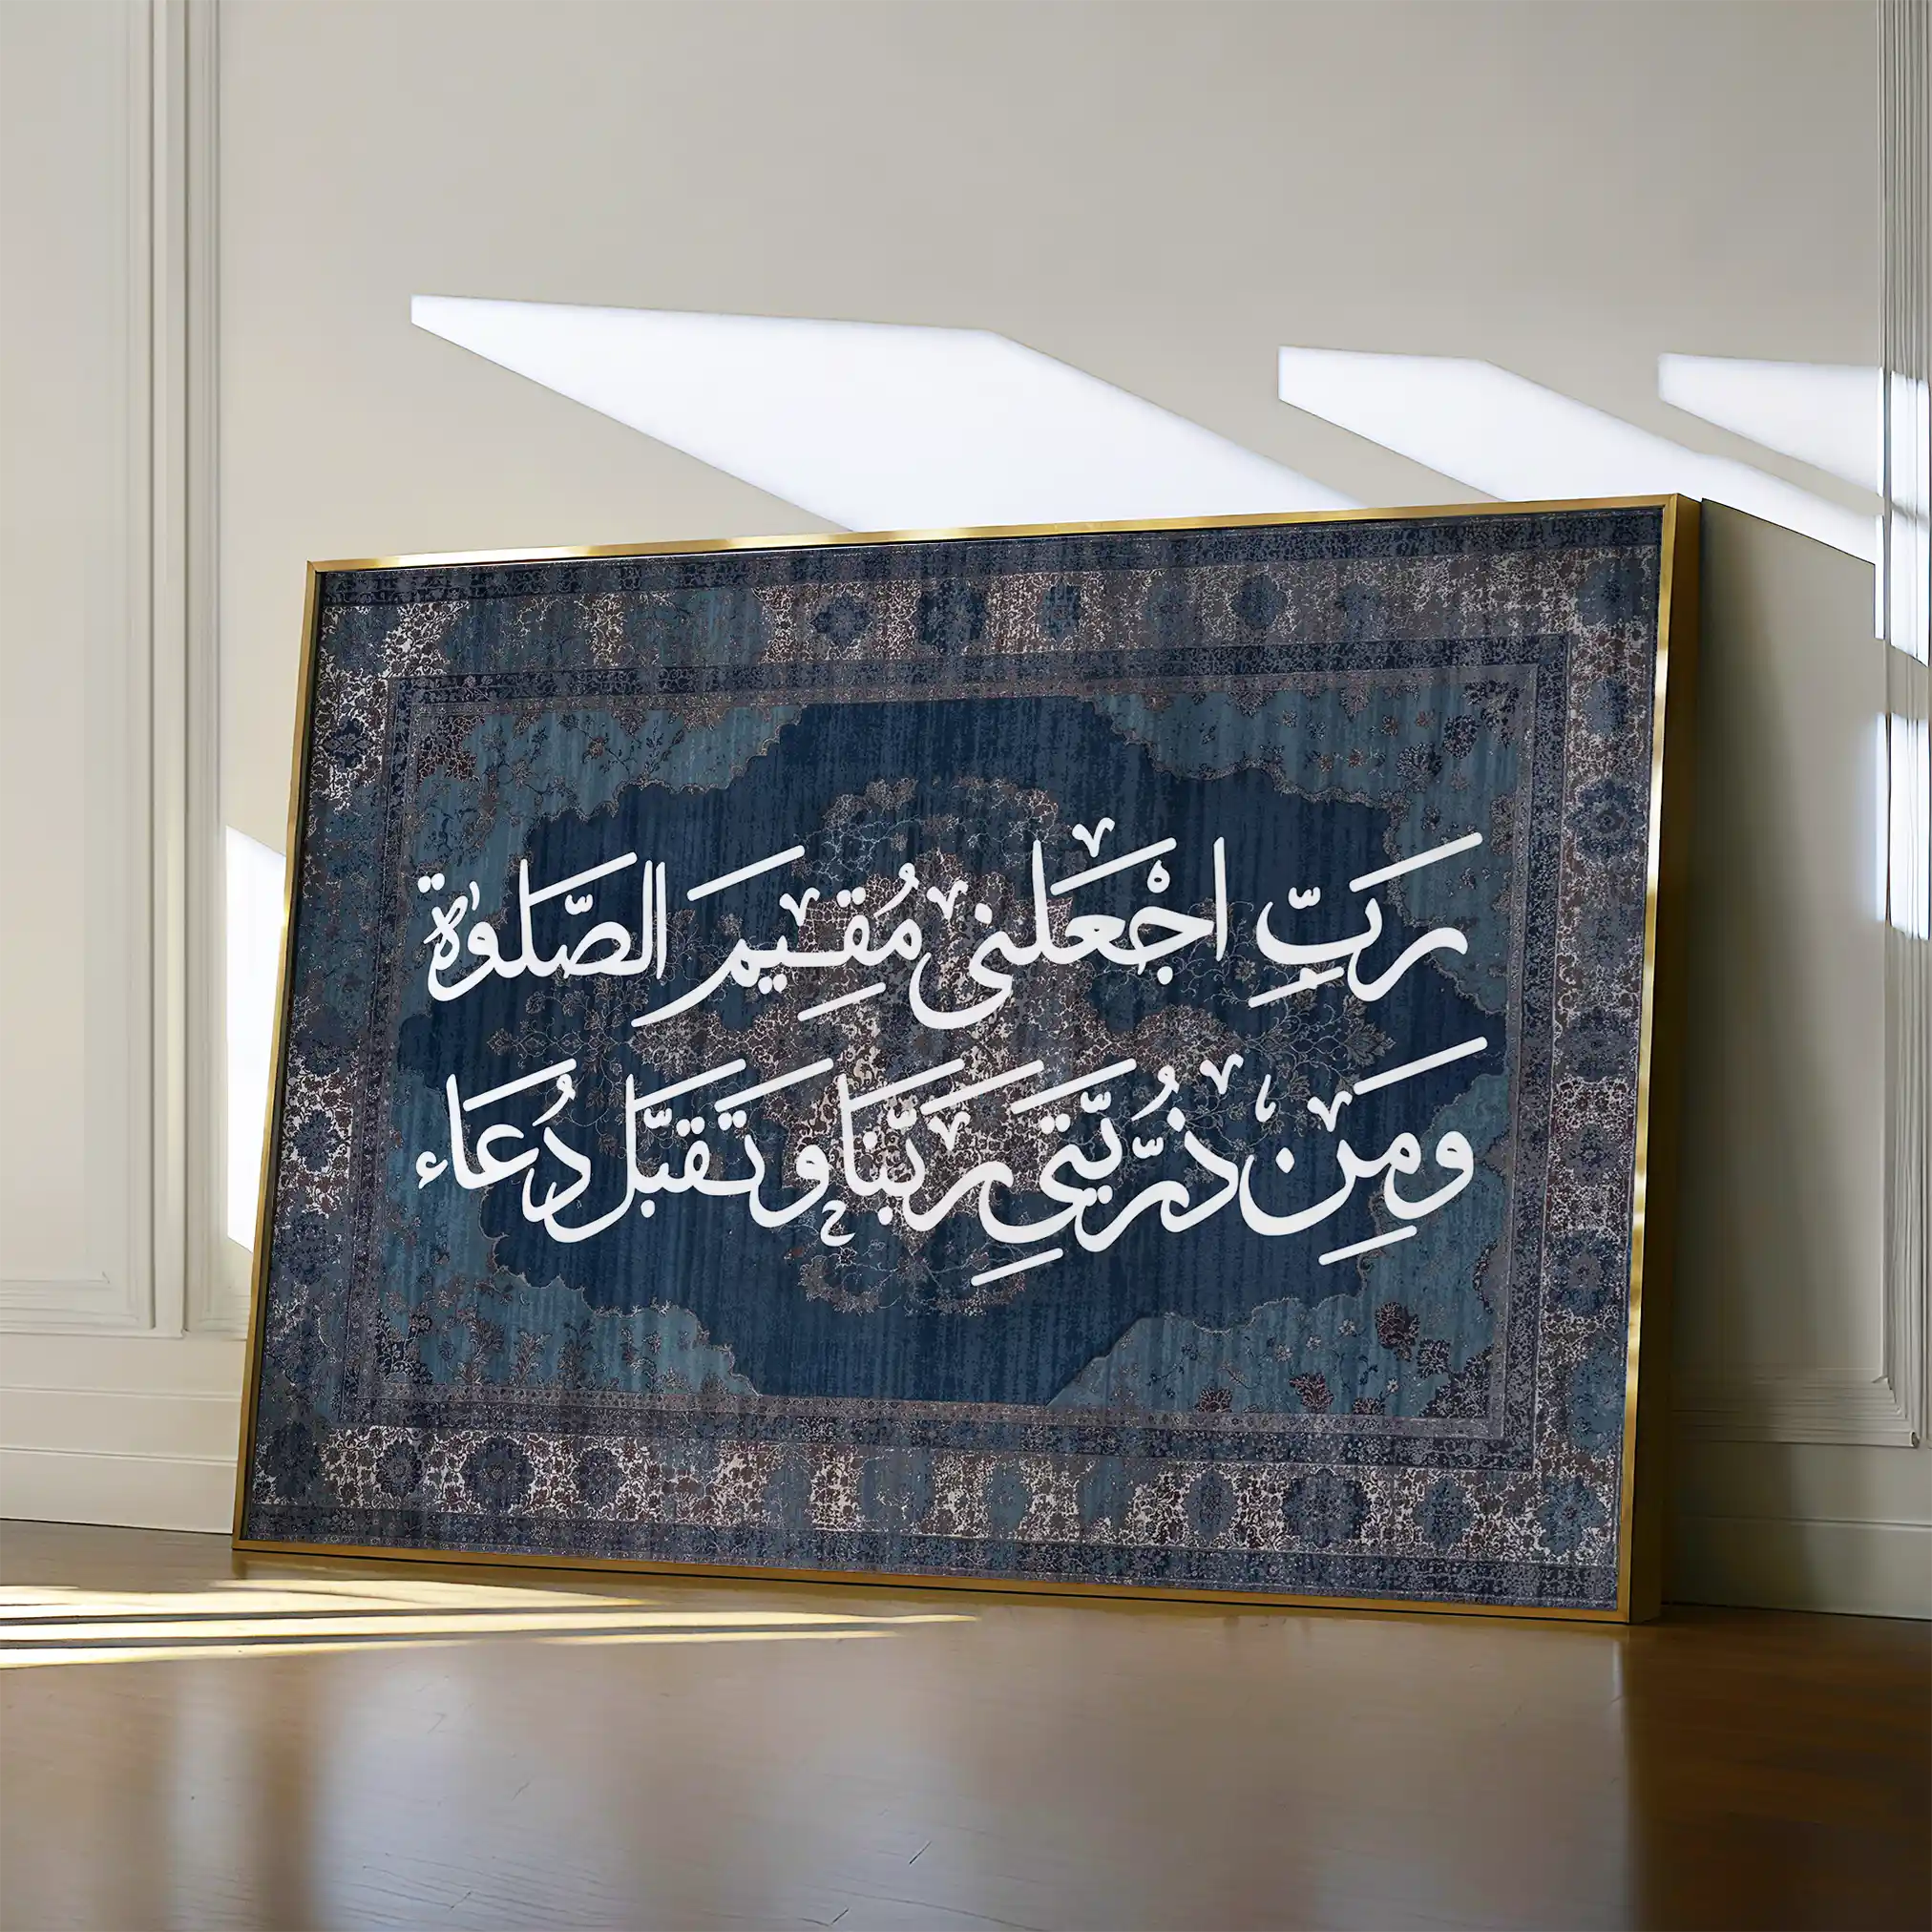 رَبِّ اجْعَلنی مُقِیمَ الصَّلٰوةَ
وَمِنْ ذُرِّیَّتِی رَبَّنَا وَتَقَبَّل دُعَاء